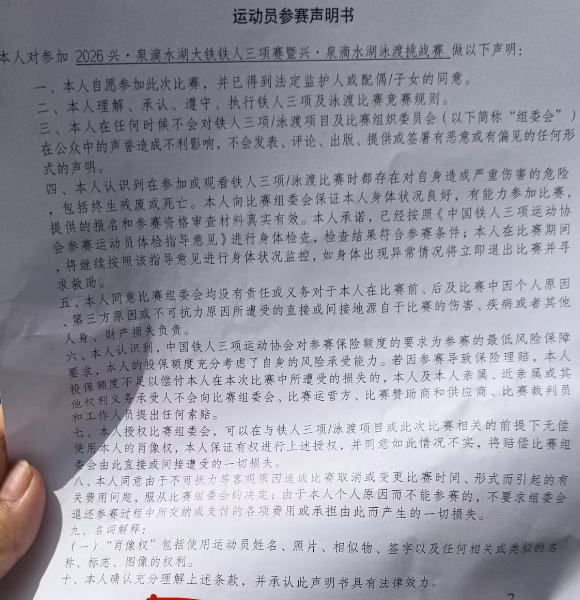 运动员参赛声明书
本人对参加 2026兴·泉滴水湖大铁铁人三项赛暨兴·泉滴水湖泳渡挑战赛 做以下声明：
一、本人自愿参加此次比赛，并已得到法定监护人或配偶/子女的同意。
二、本人理解、承认、遵守、执行铁人三项及泳渡比赛竞赛规则。
三、本人在任何时候不会对铁人三项/泳渡项目及比赛组织委员会（以下简称“组委会”）
在公众中的声誉造成不利影响，不会发表、评论、出版、提供或签署有恶意或有偏见的任何形
式的声明。
四、本人认识到在参加或观看铁人三项/泳渡比赛时都存在对自身造成严重伤害的危险
，包括终生残废或死亡。本人向比赛组委会保证本人身体状况良好，有能力参加比赛，
提供的报名和参赛资格审查材料真实有效。本人承诺，已经按照《中国铁人三项运动协
会参赛运动员体检指导意见》进行身体检查，检查结果符合参赛条件；本人在比赛期间
，将继续按照该指导意见进行身体状况监控，如身体出现异常情况将立即退出比赛并寻
求救助。
五、本人同意比赛组委会均没有责任或义务对于本人在比赛前、后及比赛中因个人原因
、第三方原因或不可抗力原因所遭受的直接或间接地源自于比赛的伤害、疾病或者其他
人身、财产损失负责。
六、本人认识到，中国铁人三项运动协会对参赛保险额度的要求为参赛的最低风险保障
要求，本人的投保额度充分考虑了自身的风险承受能力。若因参赛导致保险理赔，本人
投保额度不足以偿付本人在本次比赛中所遭受的损失的，本人及本人亲属、近亲属或其
他权利义务承受人不会向比赛组委会、比赛运营方、比赛赞助商和供应商、比赛裁判员
和工作人员提出任何索赔。
七、本人授权比赛组委会，可以在与铁人三项/泳渡项目或此次比赛相关的前提下无偿
使用本人的肖像权，本人保证有权进行上述授权，并同意如此情况不实，将赔偿比赛组
委会由此直接或间接遭受的一切损失。
八、本人同意由于不可抗力等客观原因造成比赛取消或变更比赛时间、形式而引起的有
关费用问题，服从比赛组委会的决定；由于本人个人原因而不能参赛的，不要求组委会
退还参赛过程中所交纳或支付的各项费用或承担由此而产生的一切损失。
九、名词解释：
（一）“肖像权”包括使用运动员姓名、照片、相似物、签字以及任何相关或类似的名
称、标志、图像的权利。
十、本人确认充分理解上述条款，并承认此声明书具有法律效力。